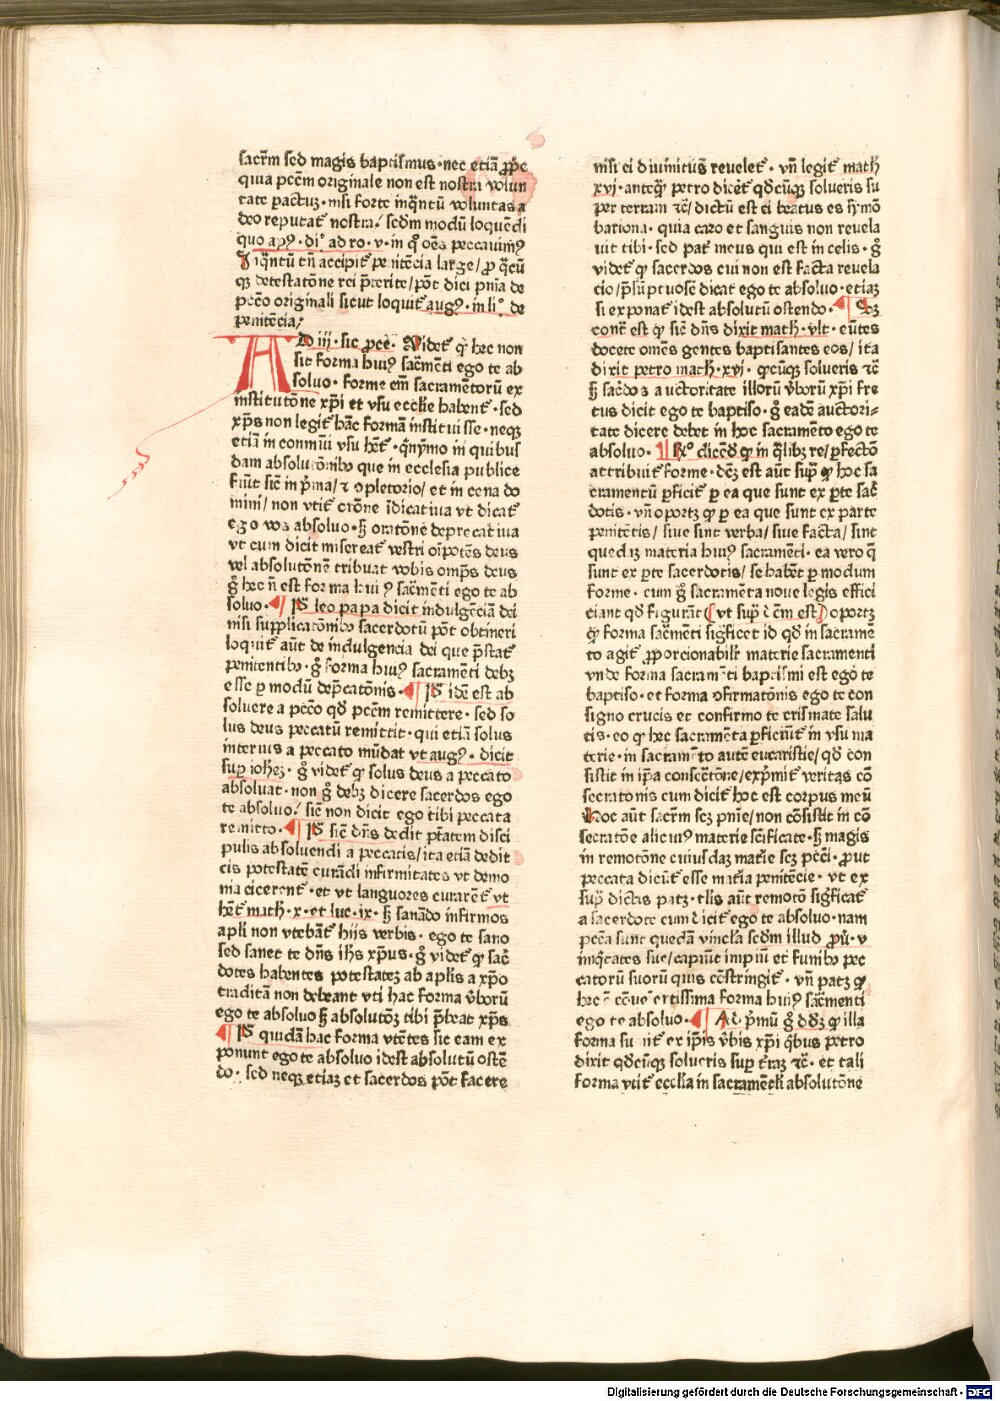 sacr̄m sed magis baptismus · nec etiā ꝓp̄e
quia pccm̄ originale non est nostra volun
tate pactuꝫ · nisi forte inq̄ntū voluntas a
deo reputat᷑ nostra / sedm modū loquēdi
quo apꝰ · di͛ ad ro · v · in qͦ oēs peccauimꝰ
Iⁿ q̄ntū tn̄ accipit᷑ penitēcia large / ꝓ q̄cū
qꝫ detestatōne rei p̄terite / pōt dici pnīa de
pccō originali sicut loquit᷑ augꝰ · in liͦ · de
penitēcia /
AD iij · sic ꝓcē · Videt᷑ ꝙ hec non
sit forma huiꝰ sac̄mēti ego te ab
soluo · forme em̄ sacramētorū ex
institutōne xp̄i et vsu ecclīe habent᷑ · sed
xp̄s non legit᷑ hāc formā instituisse · neqꝫ
etiā in conmūi vsu hēt᷑ · q̄nymo in quibus
dam absolutōnibꝰ que in ecclesia publice
fiūt sic̄ in p̄ma / ⁊ ꝯpletorio / et in cena do
mini / non vtit᷑ crōne īdicatiua vt dicat᷑
ego vos absoluo · ꝫ oratōne deprecatiua
vt cum dicit misereat᷑ vestri oīpotēs deus
vel absolutōnē tribuat vobis omp̄s deus
g̊ hec n̄ est forma huiꝰ sac̄mēti ego te ab
soluo · ¶ Pͭ leo papa dicit indulgēciā dei
nisi supplicatōnibꝰ sacerdotū pōt obtineri
loquit᷑ aūt de indulgencia dei que p̄stat᷑
penitentibꝰ · g̊ forma huiꝰ sacramēti debꝫ
esse ꝑ modū dep̄catōnis · ¶ Pͭ idē est ab
soluere a pccō qd̄ pccm̄ remittere · sed so
lus deus peccatū remittit · qui etiā solus
interius a peccato mūdat vt augꝰ · dicit
suꝑ ioheꝫ · g̊ videt᷑ ꝙ solus deus a peccato
absoluat · non g̊ debꝫ dicere sacerdos ego
te absoluo / sic̄ non dicit ego tibi peccata
remitto · ¶ Pͭ sic̄ dn̄s dedit ptātem disci
pulis absoluendi a peccatis / ita etiā dedit
eis potestatē curādi infirmitates vt demo
nia eicerent᷑ · et vt languores curarēt᷑ vt
hēt᷑ math · x · et luc · ix · ꝫ sanādo infirmos
apl̄i non vtebāt᷑ hijs verbis · ego te sano
sed sanet te dn̄s ih̄s xp̄us · g̊ videt᷑ ꝙ sac̄
dotes habentes potestateꝫ ab apl̄is a xp̄o
traditā non debeant vti hac forma v̄borū
ego te absoluo ꝫ absolutōꝫ tibi p̄beat xp̄s
¶ Pͭ quidā hac forma vtētes sic eam ex
ponunt ego te absoluo idest absolutū ostē
do · sed neqꝫ etiaꝫ et sacerdos pōt facere
nisi ei diuinitus reuelet᷑ · vn̄ legit᷑ math
xvj · anteqͣ petro dicēt᷑ qd̄cūqꝫ solueris su
per terram ⁊c̄ / dictū est ei beatus es symō
bariona · quia caro et sanguis non reuela
uit tibi · sed pat᷑ meus qui est in celis · g̊
videt᷑ ꝙ sacerdos cui non est facta reuela
cio / p̄sūptuose dicat ego te absoluo · etiaꝫ
si exponat᷑ idest absolutū ostendo · ¶ Sꝫ
contr̄ est ꝙ sic̄ dn̄s dixit math · vlt᷑ · eūtes
docete omēs gentes baptisantes eos / ita
dixit petro math · xvj · qd̄cūqꝫ solueris ⁊c̄
ꝫ sac̄dos auctoritate illorū v̄borū xp̄i fre
tus dicit ego te baptiso · g̊ eadē auctori-
tate dicere debet in hoc sacramēto ego te
absoluo · ¶ Rͦ dicēd ꝙ in q̄libꝫ re / ꝑfectō
attribuit᷑ forme · dc̄ꝫ est aūt supͣ ꝙ hoc sa
cramentū ꝑficit᷑ ꝑ ea que sunt ex ꝑte sac̄
dotis · vn̄ oportꝫ ꝙ ꝑ ea que sunt ex parte
penitētis / siue sint verba / siue facta / sint
quedaꝫ materia huiꝰ sacramēti · ea vero q̄
sunt ex ꝑte sacerdotis / se habēt ꝑ modum
forme · cum g̊ sacramēta noue legis effici
ciant qd̄ figurāt (vt supͣ dc̄m est) oportꝫ
ꝙ forma sac̄mēti sigficet id qd̄ in sacramē
to agit᷑ ꝓporcionabilr̄ materie sacramenti
vnde forma sacramēti baptismi est ego te
baptiso · et forma ꝯfirmatōnis ego te con
signo crucis et confirmo te crismate salu
tis · eo ꝙ hec sacramēta ꝑficiūt᷑ in vsu ma
terie · in sacramēto autē eucaristie / qd̄ con
sistit in ip̄a consec̄tōne / exp̄mit᷑ veritas cō
secratonis cum dicit᷑ hoc est corpus meū
Hoc aūt sac̄m scꝫ pnīe / non cōsistit in cō
secratōne alicuiꝰ materie sc̄ificate · ꝫ magis
in remotōne cuiusdaꝫ mat̄ie scꝫ pc̄ci · ꝓut
peccata dicūt᷑ esse mat̄ia penitēcie · vt ex
supͣ dictis patꝫ · tl̄is aūt remotō sigficat᷑
a sacerdote cum dicit᷑ ego te absoluo · nam
pc̄ca sunt quedā vincl̄a sedm illud ꝓū · v
iniqͥtates sue / capiūt impiū et funibꝰ pec
catorū suorū quis cōstringit᷑ · vn̄ patꝫ ꝙ
hec ē cōueniētissima forma huiꝰ sac̄menti
ego te absoluo · ¶ Ad p̄mū g̊ ddꝫ ꝙ illa
forma sumit᷑ ex ip̄is v̄bis xp̄i qͥbus petro
dixit qd̄cūqꝫ solueris suꝑ t̄raꝫ ⁊c̄ · et tali
forma vtit᷑ ecclīa in sacramētli absolutōne
Digitalisierung gefördert durch die Deutsche Forschungsgemeinschaft - DFG